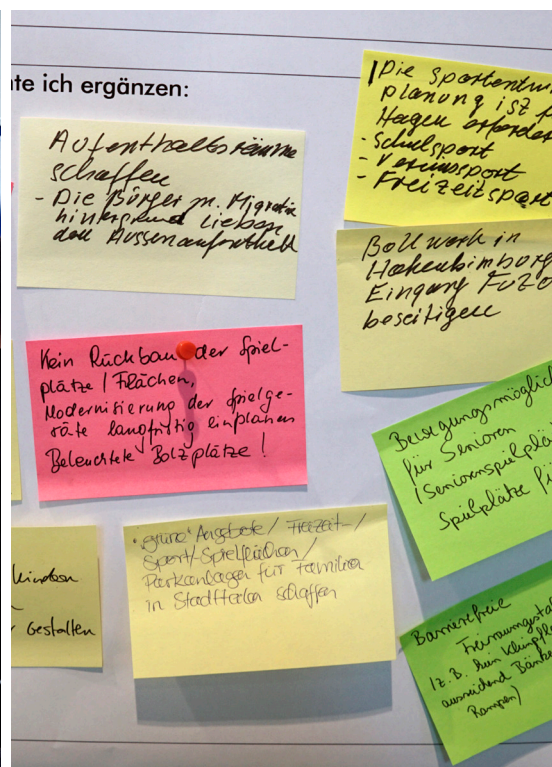 te ich ergänzen:
Aufenthaltsräume
schaffen
- Die Bürger m. Migrations
hintergrund lieben
den Aussenaufenthalt
Die Sportentw
planung ist f
Hagen erforder
- Schulsport
- Vereinssport
- Freizeitsport
Bollwerk in
Hohenlimburg
Eingang FuZo
beseitigen
Kein Rückbau der Spiel-
plätze / Flächen,
Modernisierung der Spielge-
räte langfristig einplanen
Beleuchtete Bolzplätze!
Bewegungsmöglich
für Senioren
(Seniorenspielplä
Spielplätze fü
"grüne" Angebote / Freizeit- /
Sport-Spielflächen /
Parkanlagen für Familien
in Stadtteilen schaffen
Gestalten
Barrierefreie
Freiraumgesta
(z.B. kein Kleinpfla
ausreichend Bänke
Rampen)